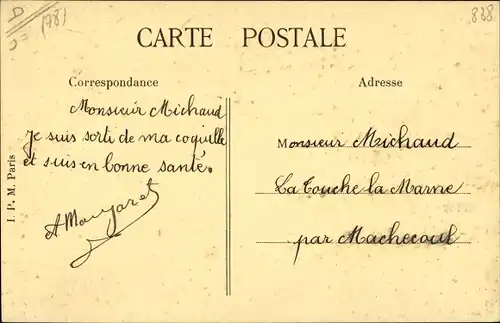 D (78)
838
CARTE POSTALE
Correspondance
Adresse
Monsieur Michaud
Je suis sorti de ma coquille
et suis en bonne santé.
Monsieur Michaud
La Touche la Marne
par Machecoul
J. P. M. Paris